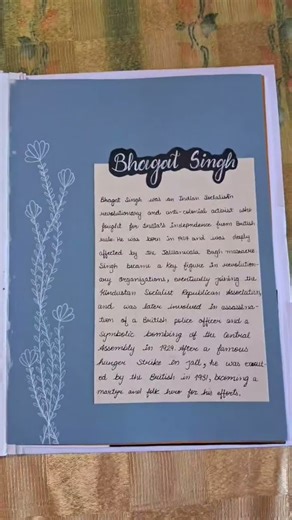 Bhagat Singh
Bhagat Singh was an Indian Socialist
revolutionary and anti-colonial activist who
fought for India's Independence from British
rule. He was born in 1907 and was deeply
affected by the Jallianwala Bagh massacre
Singh became a key figure in revolution-
ary organisations, eventually joining the
Hindustan Socialist Republican Association,
and was later involved in assassina-
tion of a British police officer and a
symbolic bombing of the Central
Assembly in 1929. After a famous
hunger strike in jail, he was execut
ed by the British in 1931, becoming a
martyr and folk hero for his efforts.